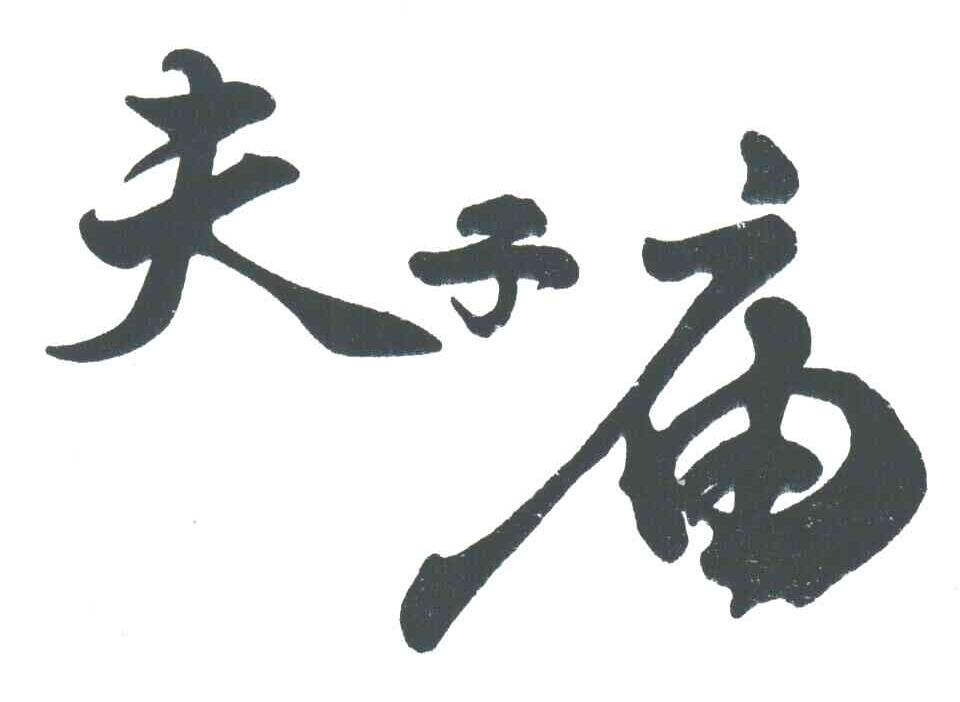 夫子庙